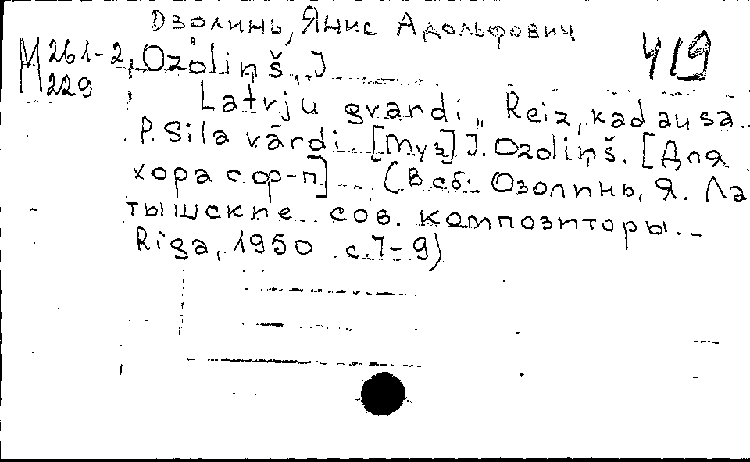 Озолинь, Янис Адольфович
419
М 261-2
229
Ozoliņš, J
Latvju gvardi „Reiz, kad ausa
P. Sila vārdi. [Муз] J. Ozoliņš. [Для
хора с ф-п] (В сб: Озолинь, Я. Ла
тышские сов. композиторы. –
Riga, 1950 с.7-9)